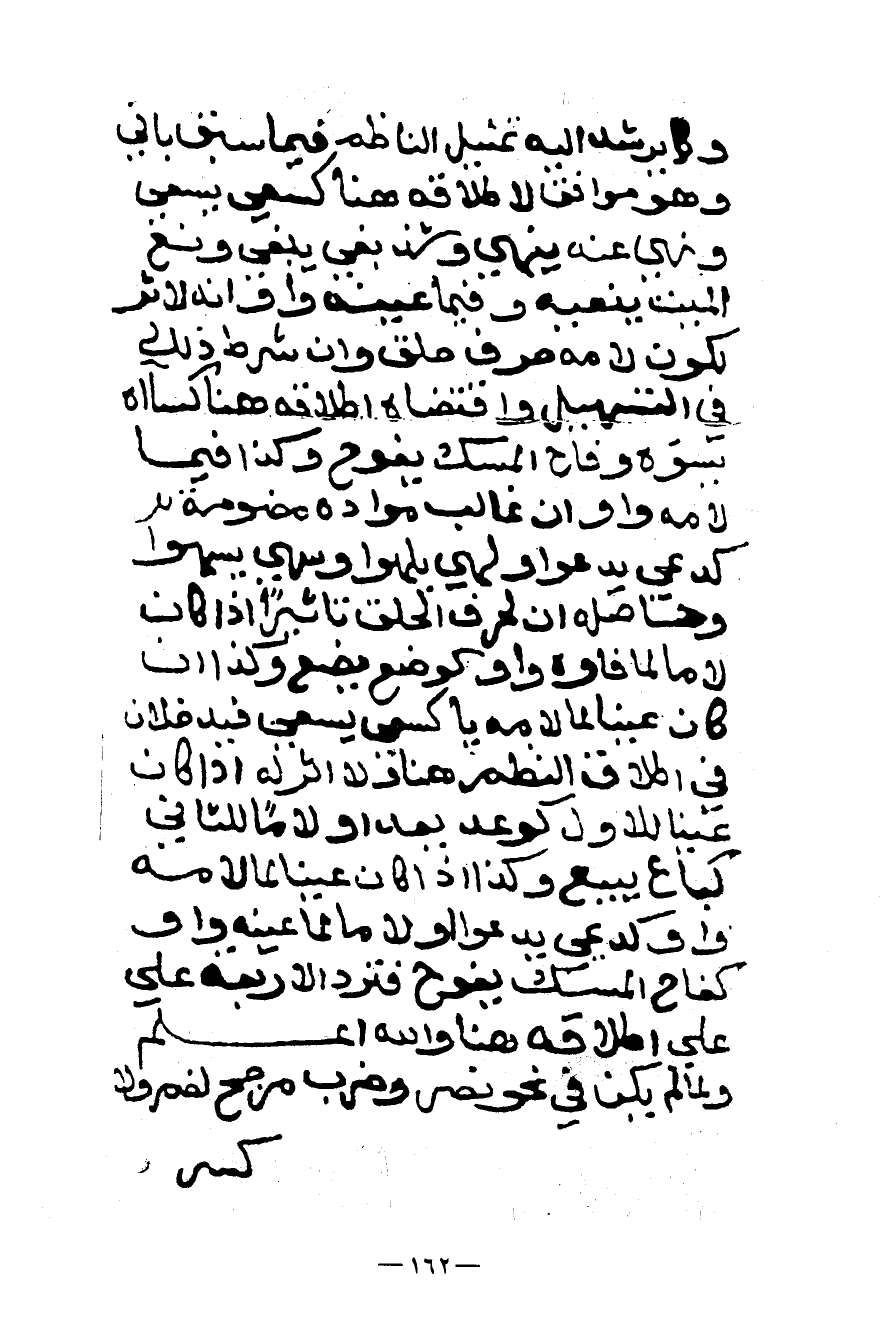 وكما يرشد اليه تمثيل الناظم فيما سبق باتي
وهو موافق لاطلاقه هنا كسعي يسعى
ونهى عنه ينهي وشذ بغي يبغى ونع
الميت ينعيه وفيما عينه واو انه لا اثر
لكون لامه حرف حلق وان شرط ذلك
في التسهيل واقتضاه اطلاقه هنا كساه
يسوه وفاح المسك يفوح وكذا فيما
لامه واو ان غالب مواده مضمومة
كدعى يدعوا ولهى يلهوا وسهى يسهوا
وحاصله ان لحرف الحلق تاثيرًا اذا كان
لاما لما فاوه واو كوضع يضع وكذا ان
كان عينا لما لامه يا كسعى يسعى فيدخلان
في اطلاق النظم هنا ولا اثر له اذا كان
عينا للاول كوعد يعد او لامًا للثاني
كباع يبيع وكذا اذا كان عينا لما لامه
واو كدعى يدعوا او لاما لما عينه واو
كفاح المسك يفوح فترد الاربعة علي
علي اطلاقه هنا والله اعلم
ولما لم يكن في نحو نصر وضرب مرجح لضم ولا
كسر
— ١٦٢ —